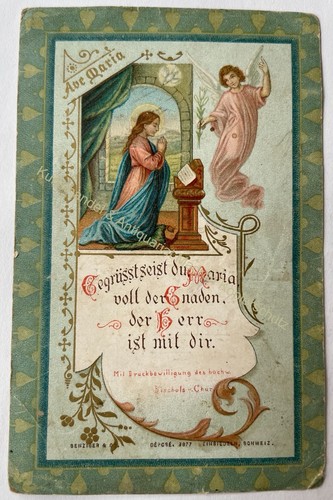 Ave Maria
Gegrüsst seist du Maria
voll der Gnaden,
der Herr
ist mit dir.
Mit Druckbewilligung des hochw
Bischofs v. Chur
BENZIGER & DÉPOSÉ. 3977 EINSIEDELN, SCHWEIZ.